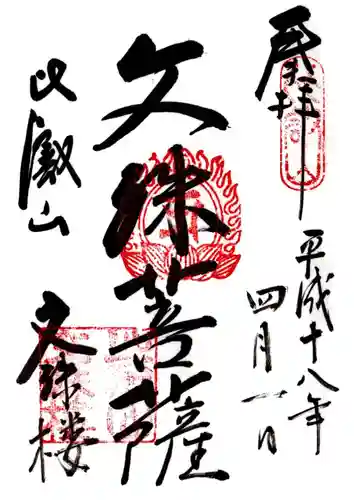 奉拝
平成十八年
四月一日
文殊菩薩
比叡山
文殊楼